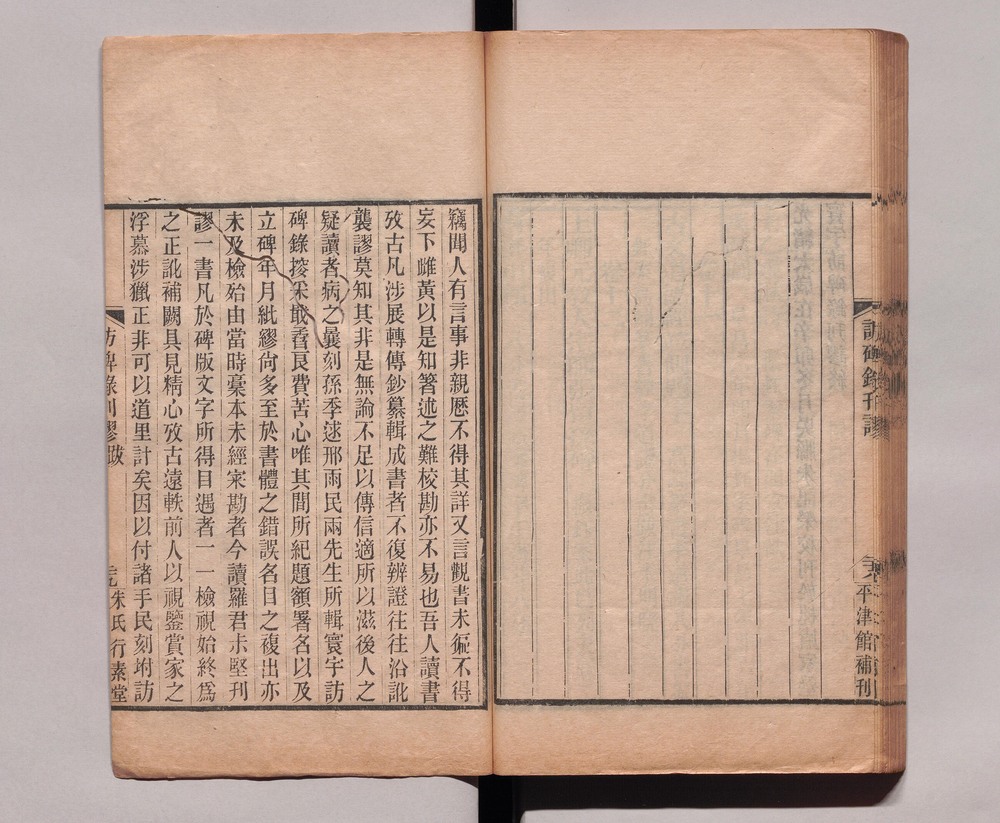 訪碑錄刊謬
平津館補刊
竊聞人有言事非親歷不得其詳又言觀書未徧不得
妄下雌黃以是知箸述之難校勘亦不易也吾人讀書
攷古凡涉展轉傳鈔纂輯成書者不復辨證往往沿訛
襲謬莫知其非是無論不足以傳信適所以滋後人之
疑讀者病之曩刻孫季逑邢雨民兩先生所輯寰宇訪
碑錄搜采㝡爲良費苦心唯其間所紀題額署名以及
立碑年月紕繆尙多至於書體之錯誤名目之複出亦
未及檢殆由當時稾本未經寀勘者今讀羅君尗堅刊
謬一書凡於碑版文字所得目遇者一一檢視始終爲
之正訛補闕具見精心攷古遠軼前人以視鑒賞家之
浮慕涉獵正非可以道里計矣因以付諸手民刻坿訪
訪碑錄刊謬跋
朱氏行素堂